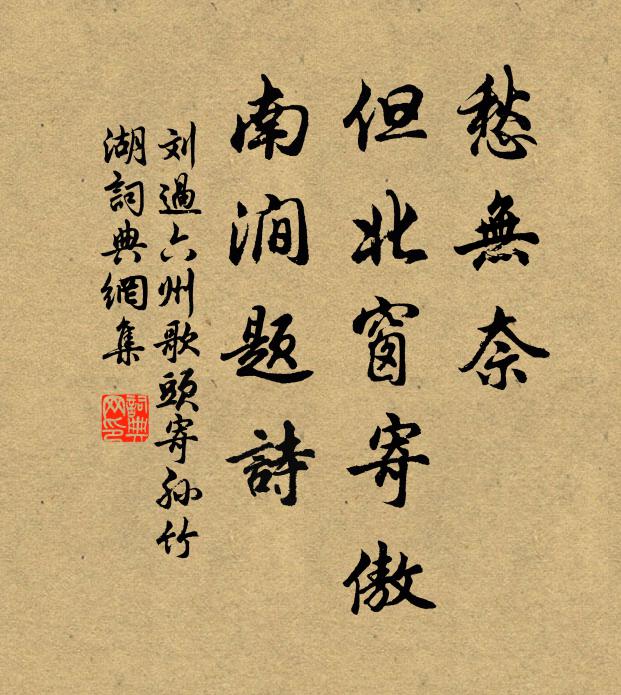 愁無奈
但北窗寄傲
南澗題詩
刘過六州歌頭寄孙竹
湖詞典網集
詞典网印